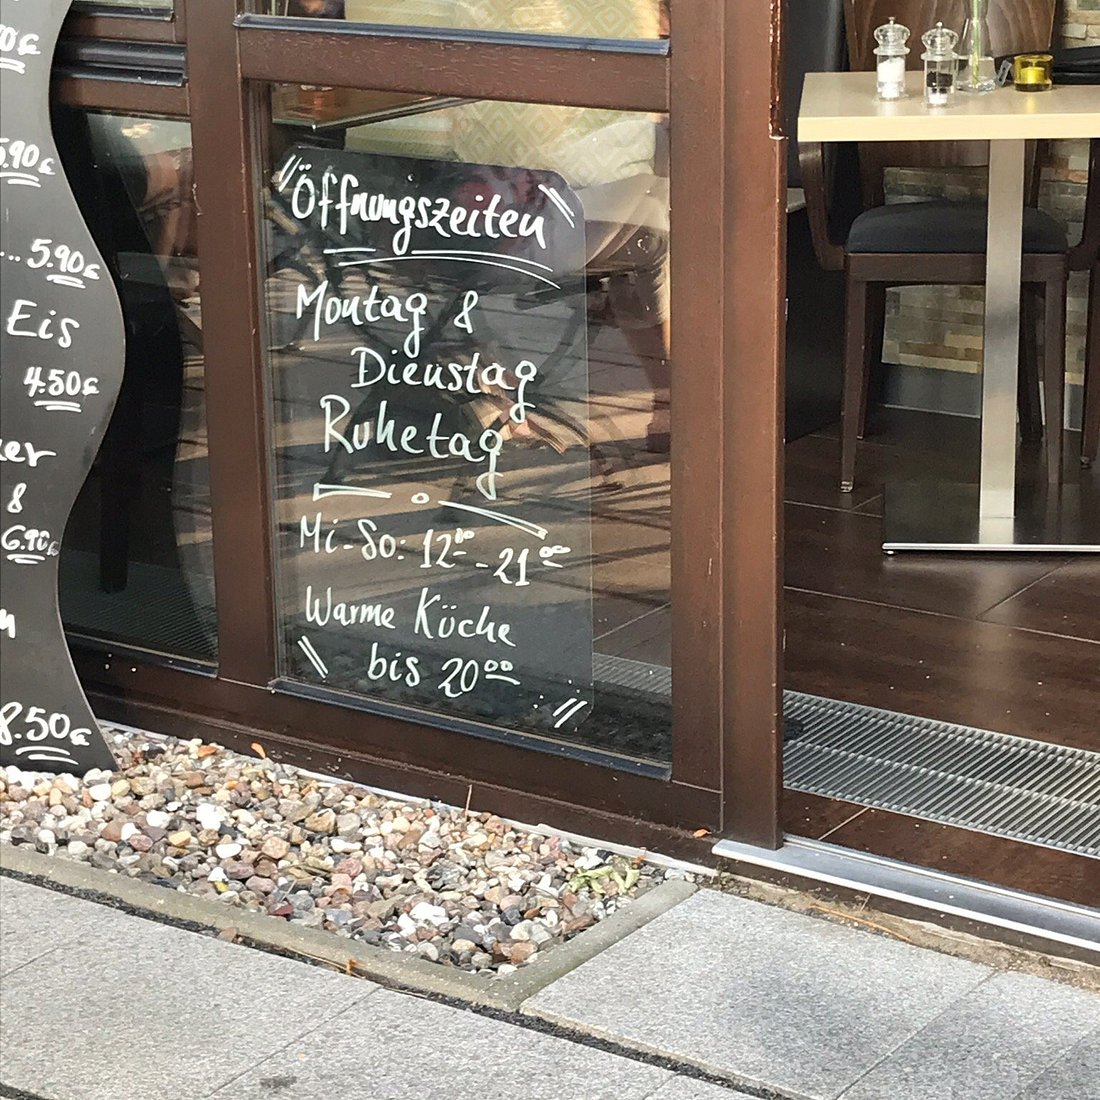 5.90€
... 5.90€
Eis
4.50€
&
6.90€
8.50€
Öffnungszeiten
Montag &
Dienstag
Ruhetag
Mi-So: 12⁰⁰ - 21⁰⁰
Warme Küche
bis 20⁰⁰